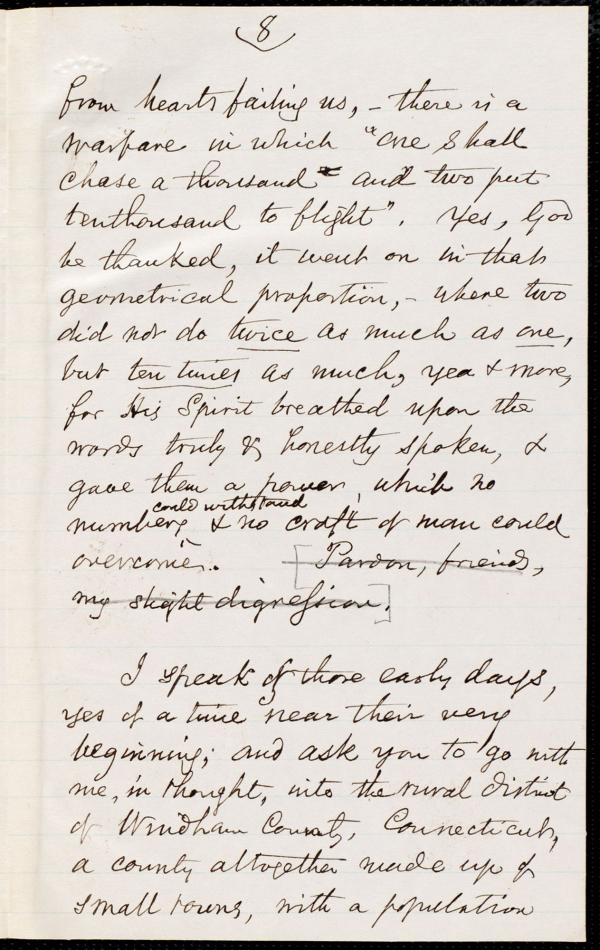 8
from hearts failing us, – there is a
warfare in which "one shall
chase a thousand and two put
ten thousand to flight". Yes, God
be thanked, it went on in that
geometrical proportion, – where two
did not do twice as much as one,
but ten times as much, yea & more,
for His Spirit breathed upon the
words truly & honestly spoken, &
gave them a power, which no
could withstand
numbers & no craft of man could
overcome. [Pardon, friends,
my slight digression.]
I speak of those early days,
yes of a time near their very
beginning; and ask you to go with
me, in thought, into the rural district
of Windham County, Connecticut,
a county altogether made up of
small towns, with a population